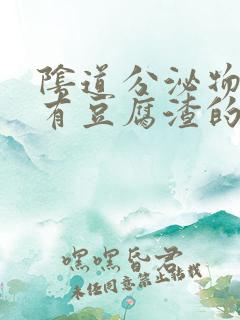 陰道分泌物
有豆腐渣的
嘿嘿昏君
未经同意禁止转载